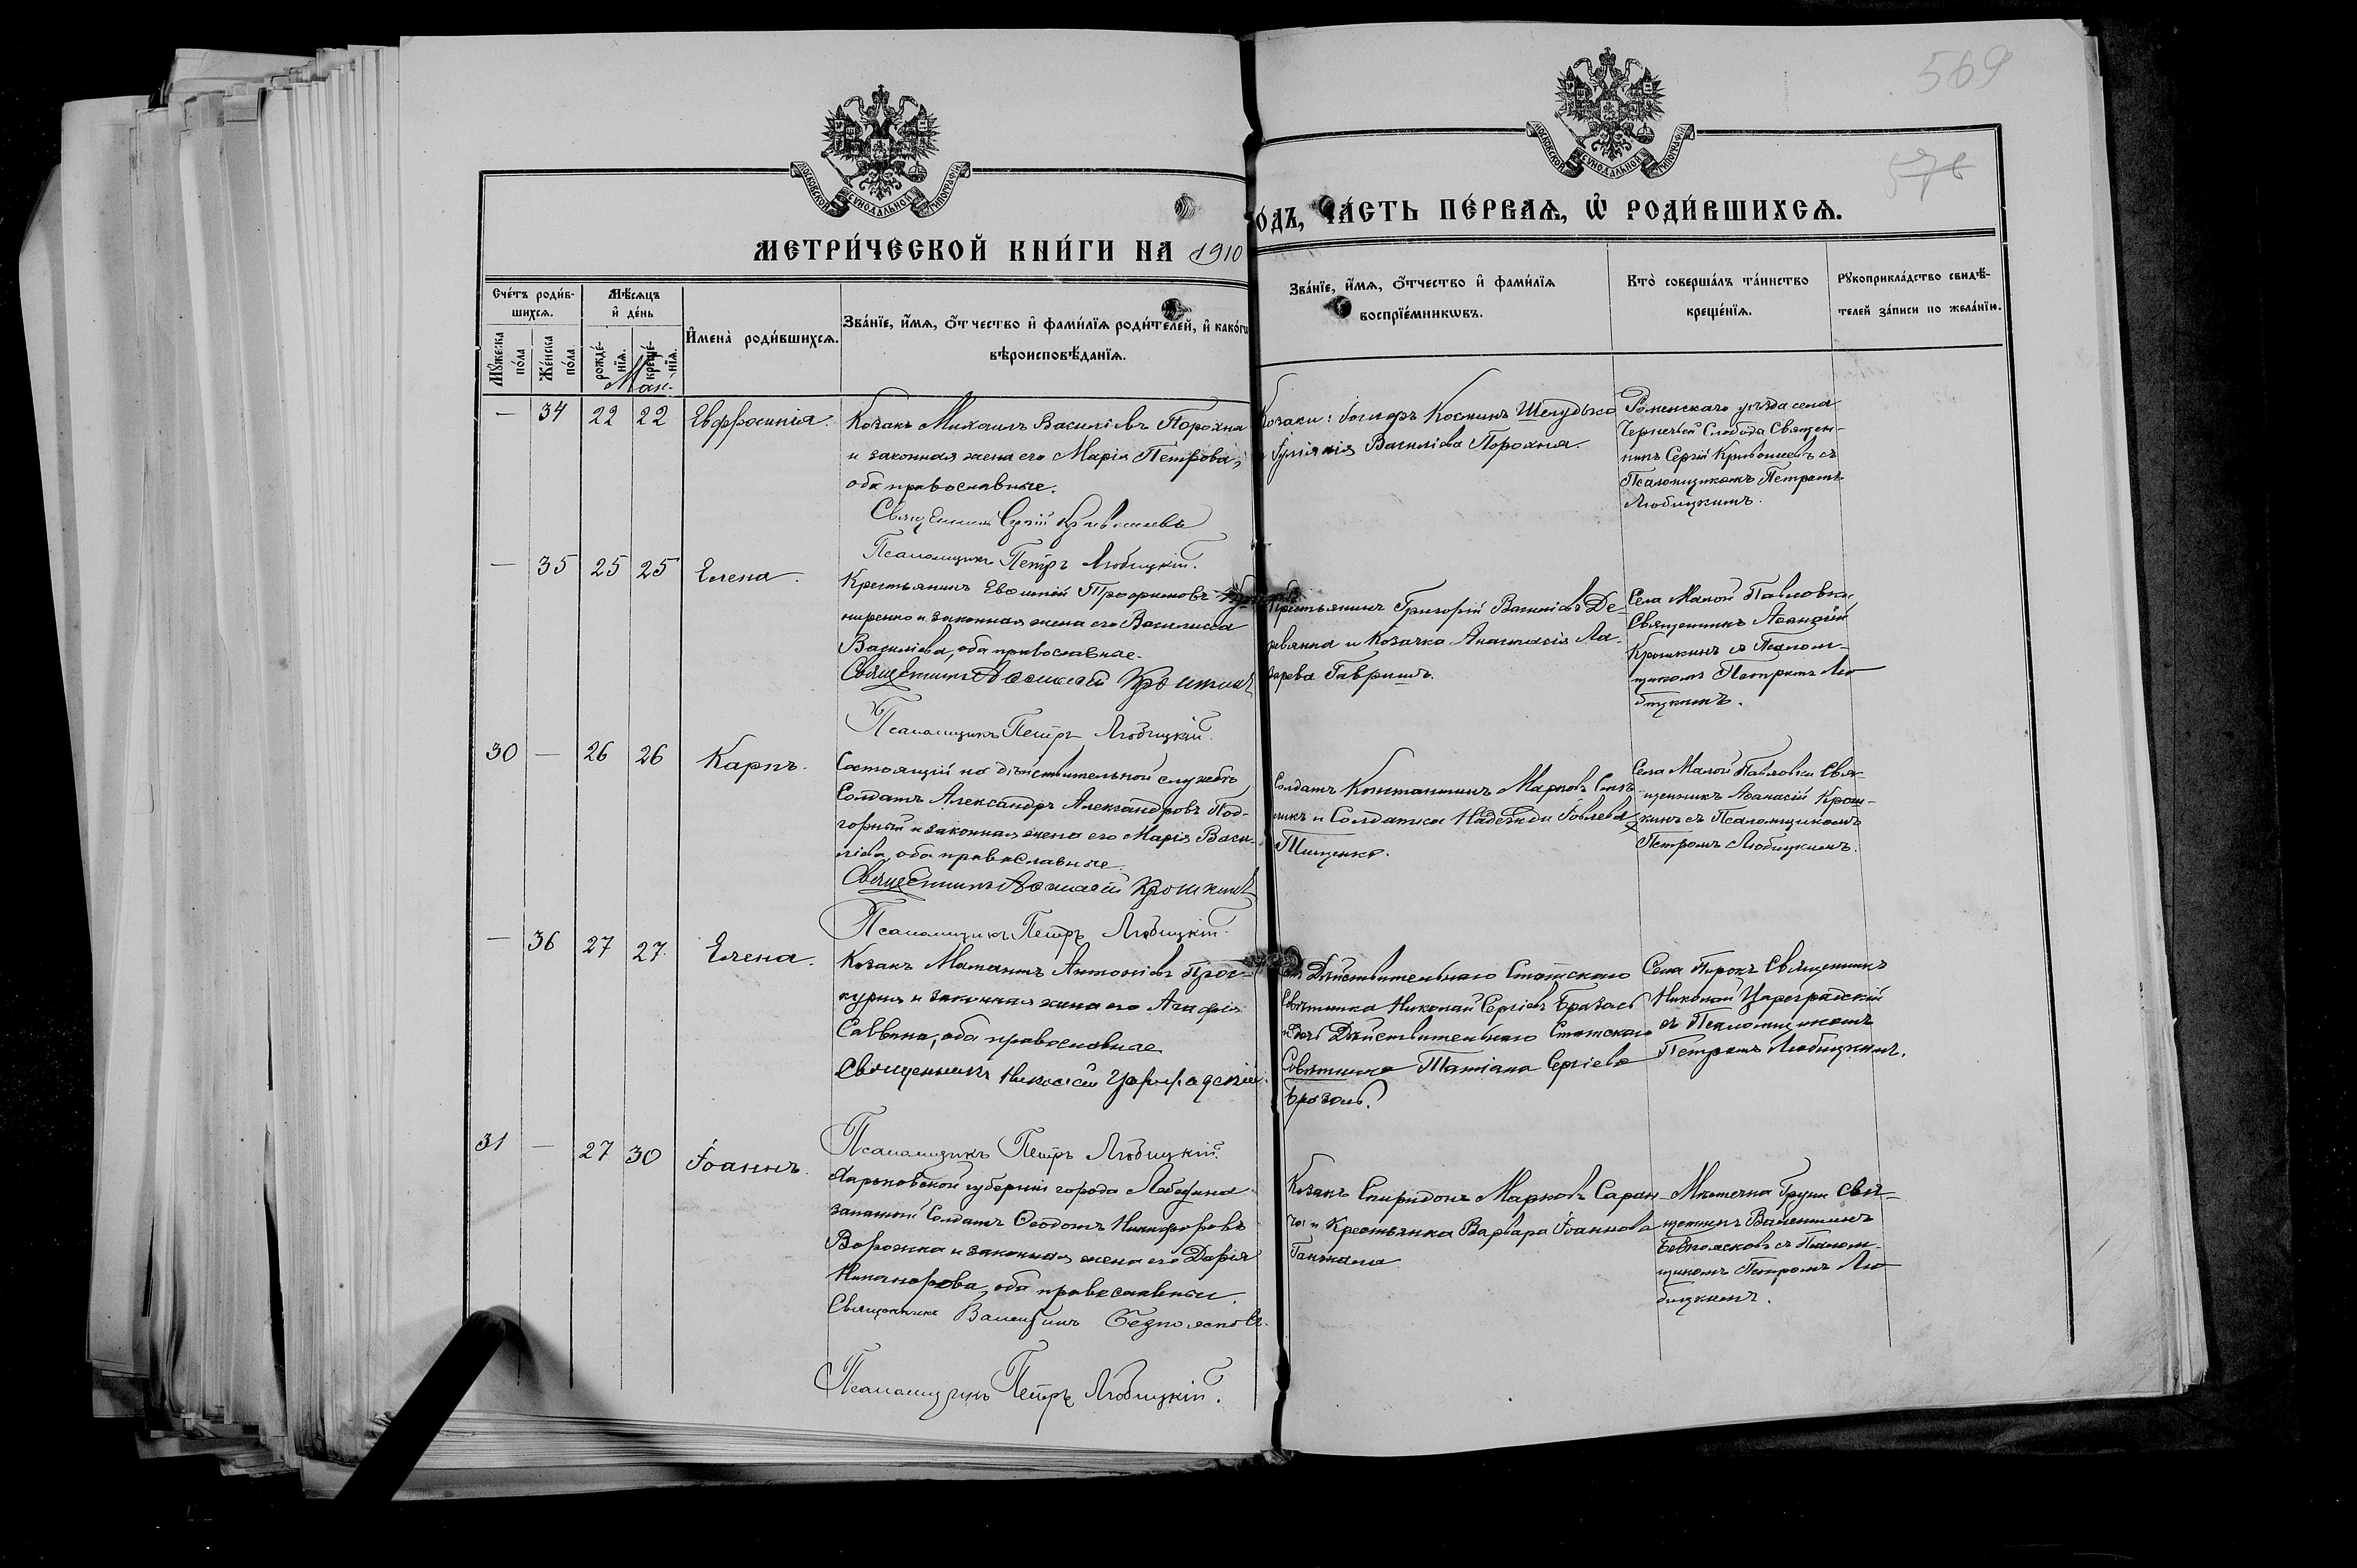 569
576
МОСКОВСКОЙ СѴНОДАЛЬНОЙ ТИПОГРАФІИ
МОСКОВСКОЙ СѴНОДАЛЬНОЙ ТИПОГРАФІИ
МЕТРИ́ЧЕСКОЙ КНИ́ГИ НА 1910
О́ДЪ, ЧА́СТЬ ПЕ́РВАѦ, Ѿ РОДИ́ВШИХСѦ.
Сче́тъ роди́в-
шихсѧ.
Мꙋ́жеска по́ла
Же́нска по́ла
Мѣ́сѧцъ
и҆ де́нь
рожде́-нїѧ.
креще́-нїѧ.
Май
И҆мена̀ роди́вшихсѧ.
Зва́нїе, и҆́мѧ, ѻ҆́тчество и҆ фами́лїѧ роди́телей, и҆ како́гѡ
вѣроисповѣ́данїѧ.
Зва́нїе, и҆́мѧ, ѻ҆́тчество и҆ фами́лїѧ
воспрїе́мникѡвъ.
Кто̀ соверша́лъ та́инство
креще́нїѧ.
Рꙋкоприкла́дство свидѣ́-
телей за́писи по жела́нїи.
— 34 22 22 Евфросинія.
Козакъ Михаилъ Василіевъ Порохня
и законная жена его Марія Петрова,
оба православные.
Священникъ Сергій Кривошеевъ
Псаломщикъ Петръ Любицкій.
Козаки: Іосифъ Косминъ Шелудько
и Іуліанія Василіева Порохня.
Роменскаго уѣзда села
Чернечьей Слобода Священ-
никъ Сергій Кривошеевъ съ
Псаломщикомъ Петромъ
Любицкимъ.
— 35 25 25 Елена.
Крестьянинъ Евѳимій Трофимовъ
ниренко и законная жена его Василисса
Василіева, оба православные.
Священникъ Аѳанасій Крошкинъ
Псаломщикъ Петръ Любицкій.
Крестьянинъ Григорій Василіевъ Де-
ревянка и Козачка Анастасія Ла-
зарева Гавришъ.
Села Малой Павловки
Священникъ Аѳанасій
Крошкинъ съ Псалом-
щикомъ Петромъ Лю-
бицкимъ.
30 — 26 26 Карпъ.
Состоящій на дѣйствительной службѣ
Солдатъ Александръ Александровъ Под-
горный и законная жена его Марія Васи-
ліева, оба православные.
Священникъ Аѳанасій Крошкинъ
Псаломщикъ Петръ Любицкій.
Солдатъ Константинъ Марковъ
и Солдатка Надежда Іовлева
Тищенко.
Села Малой Павловки Свя-
щенникъ Аѳанасій Крош-
кинъ съ Псаломщикомъ
Петромъ Любицкимъ.
— 36 27 27 Елена.
Козакъ Антоніевъ Прос-
курня и законная жена его Агафія
Саввина, оба православные
Священникъ Николай Цареградскій.
Псаломщикъ Петръ Любицкій.
Дѣйствительнаго Статскаго
Совѣтника Николай Сергіевъ Бразоль
и Дочь Дѣйствительнаго Статскаго
Совѣтника Татіана Сергіева
Бразоль.
Села Пирокъ Священникъ
Николай Цареградскій
съ Псаломщикомъ
Петромъ Любицкимъ.
31 — 27 30 Іоаннъ.
Харьковской губерніи города Лебедина
запасный Солдатъ Ѳеодотъ Никифоровъ
Ворожка и законная жена его Дарія
Никанорова, оба православные.
Священникъ Валентинъ Безпоясковъ.
Псаломщикъ Петръ Любицкій.
Козакъ Спиридонъ Марковъ Саран-
ча и Крестьянка Варвара Іоаннова
Ганжала
Мѣстечка Груни Свя-
щенникъ Валентинъ
Безпоясковъ съ Псалом-
щикомъ Петромъ Лю-
бицкимъ.